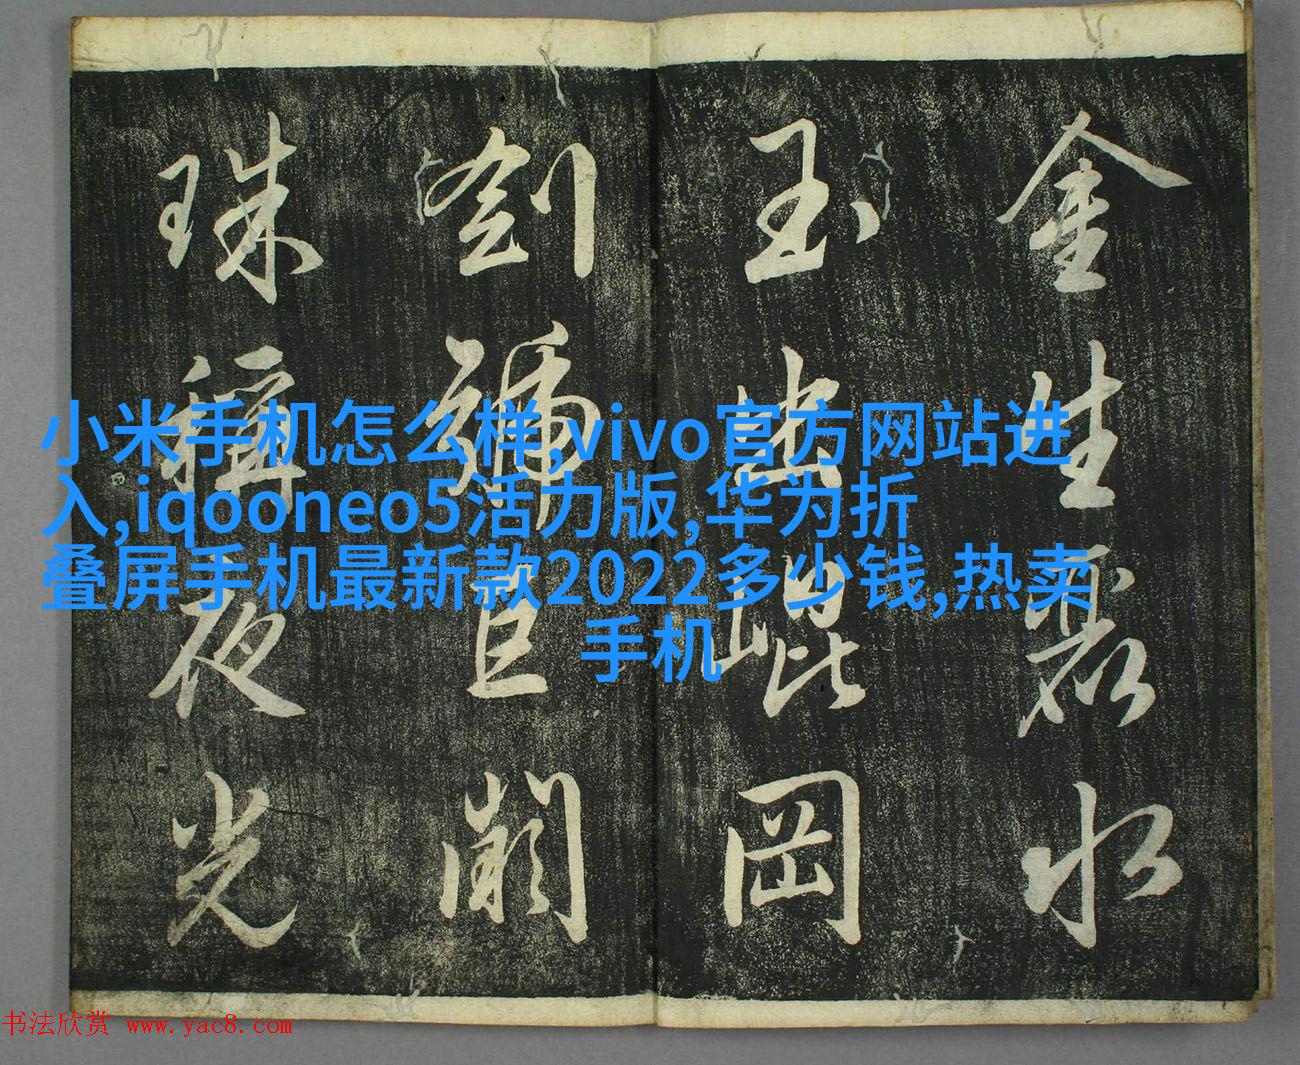 金生麗水
玉出崐岡
劍號巨闕
珠稱夜光
小米手机怎么样,vivo官方网站进
入,iqooneo5活力版,华为折
叠屏手机最新款2022多少钱,热卖
手机
书法欣赏 www.yac8.com